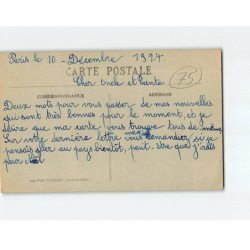 Paris le 10 - Décembre 1924
CARTE POSTALE
Cher oncle et tante
75
CORRESPONDANCE
ADRESSE
Deux mots pour vous passer de mes nouvelles
qui sont très bonnes pour le moment, et je
espère que ma carte vous trouve tous de même
Sur votre dernière lettre vous demandiez si je
pensais aller au pays bientôt, peut être que j'irais
pour